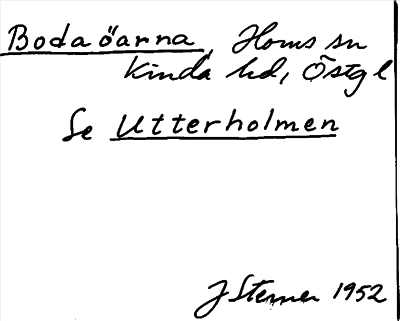 Bodaöarna, Horns sn
Kinda hd, Östgl
Se Utterholmen
J Sterner 1952